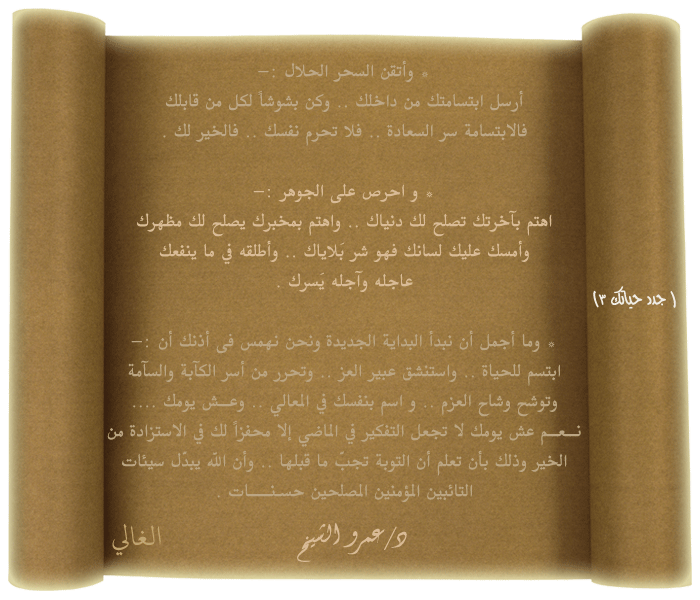 * وأتقن السحر الحلال :-
أرسل ابتسامتك من داخلك .. وكن بشوشاً لكل من قابلك
فالابتسامة سر السعادة .. فلا تحرم نفسك .. فالخير لك .
* و احرص على الجوهر :-
اهتم بآخرتك تصلح لك دنياك .. واهتم بمخبرك يصلح لك مظهرك
وأمسك عليك لسانك فهو شر بَلاياك .. وأطلقه في ما ينفعك
عاجله وآجله يَسرك .
( جدد حياتك ٣)
* وما أجمل أن نبدأ البداية الجديدة ونحن نهمس فى أذنك أن :-
ابتسم للحياة .. واستنشق عبير العز .. وتحرر من أسر الكآبة والسآمة
وتوشح وشاح العزم .. و اسم بنفسك في المعالي .. وعــش يومك ....
نــعــم عش يومك لا تجعل التفكير في الماضي إلا محفزاً لك في الاستزادة من
الخير وذلك بأن تعلم أن التوبة تجبّ ما قبلها .. وأن الله يبدّل سيئات
التائبين المؤمنين المصلحين حسنــــات .
د/عمرو الشيخ
الغالي